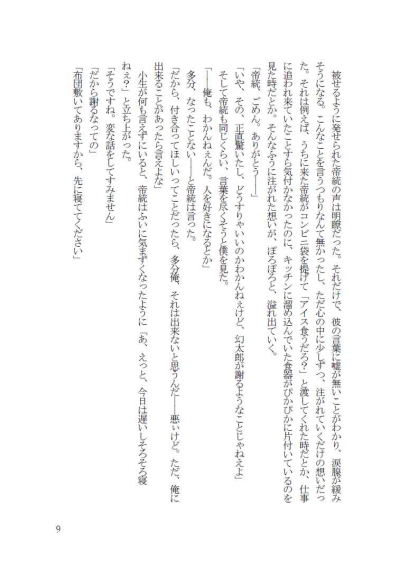 被せるように発せられた帝統の声は明瞭だった。それだけで、彼の言葉に嘘が無いことがわかり、涙腺が緩み
そうになる。こんなことを言うつもりなんて無かったし、ただ心の中に少しずつ、注がれていくだけの想いだっ
た。それは例えば、うちに来た帝統がコンビニ袋を提げて「アイス食うだろ?」と渡してくれた時だとか、仕事
に追われ来ていたことすら気付かなかったのに、キッチンに溜め込んでいた食器がぴかぴかに片付いているのを
見た時だとか。そんなふうに注がれた想いが、ぽろぽろと、溢れ出ていく。
「帝統、ごめん。ありがとう――」
「いや、その、正直驚いたし、どうすりゃいいのかわかんねぇけど、幻太郎が謝るようなことじゃねえよ」
そして帝統も同じくらい、言葉を尽くそうと僕を見た。
「――俺も、わかんねぇんだ。人を好きになるとか」
多分、なったことない――と帝統は言った。
「だから、付き合ってほしいってことだったら、多分俺、それは出来ないと思うんだ――悪いけど。ただ、俺に
出来ることがあったら言えよな」
小生が何も言えずにいると、帝統はふいに気まずくなったように「あ、えっと、今日は遅いしそろそろ寝
ねぇ?」と立ち上がった。
「そうですね。変な話をしてすみません」
「だから謝るなっての」
「布団敷いてありますから、先に寝ててください」
9